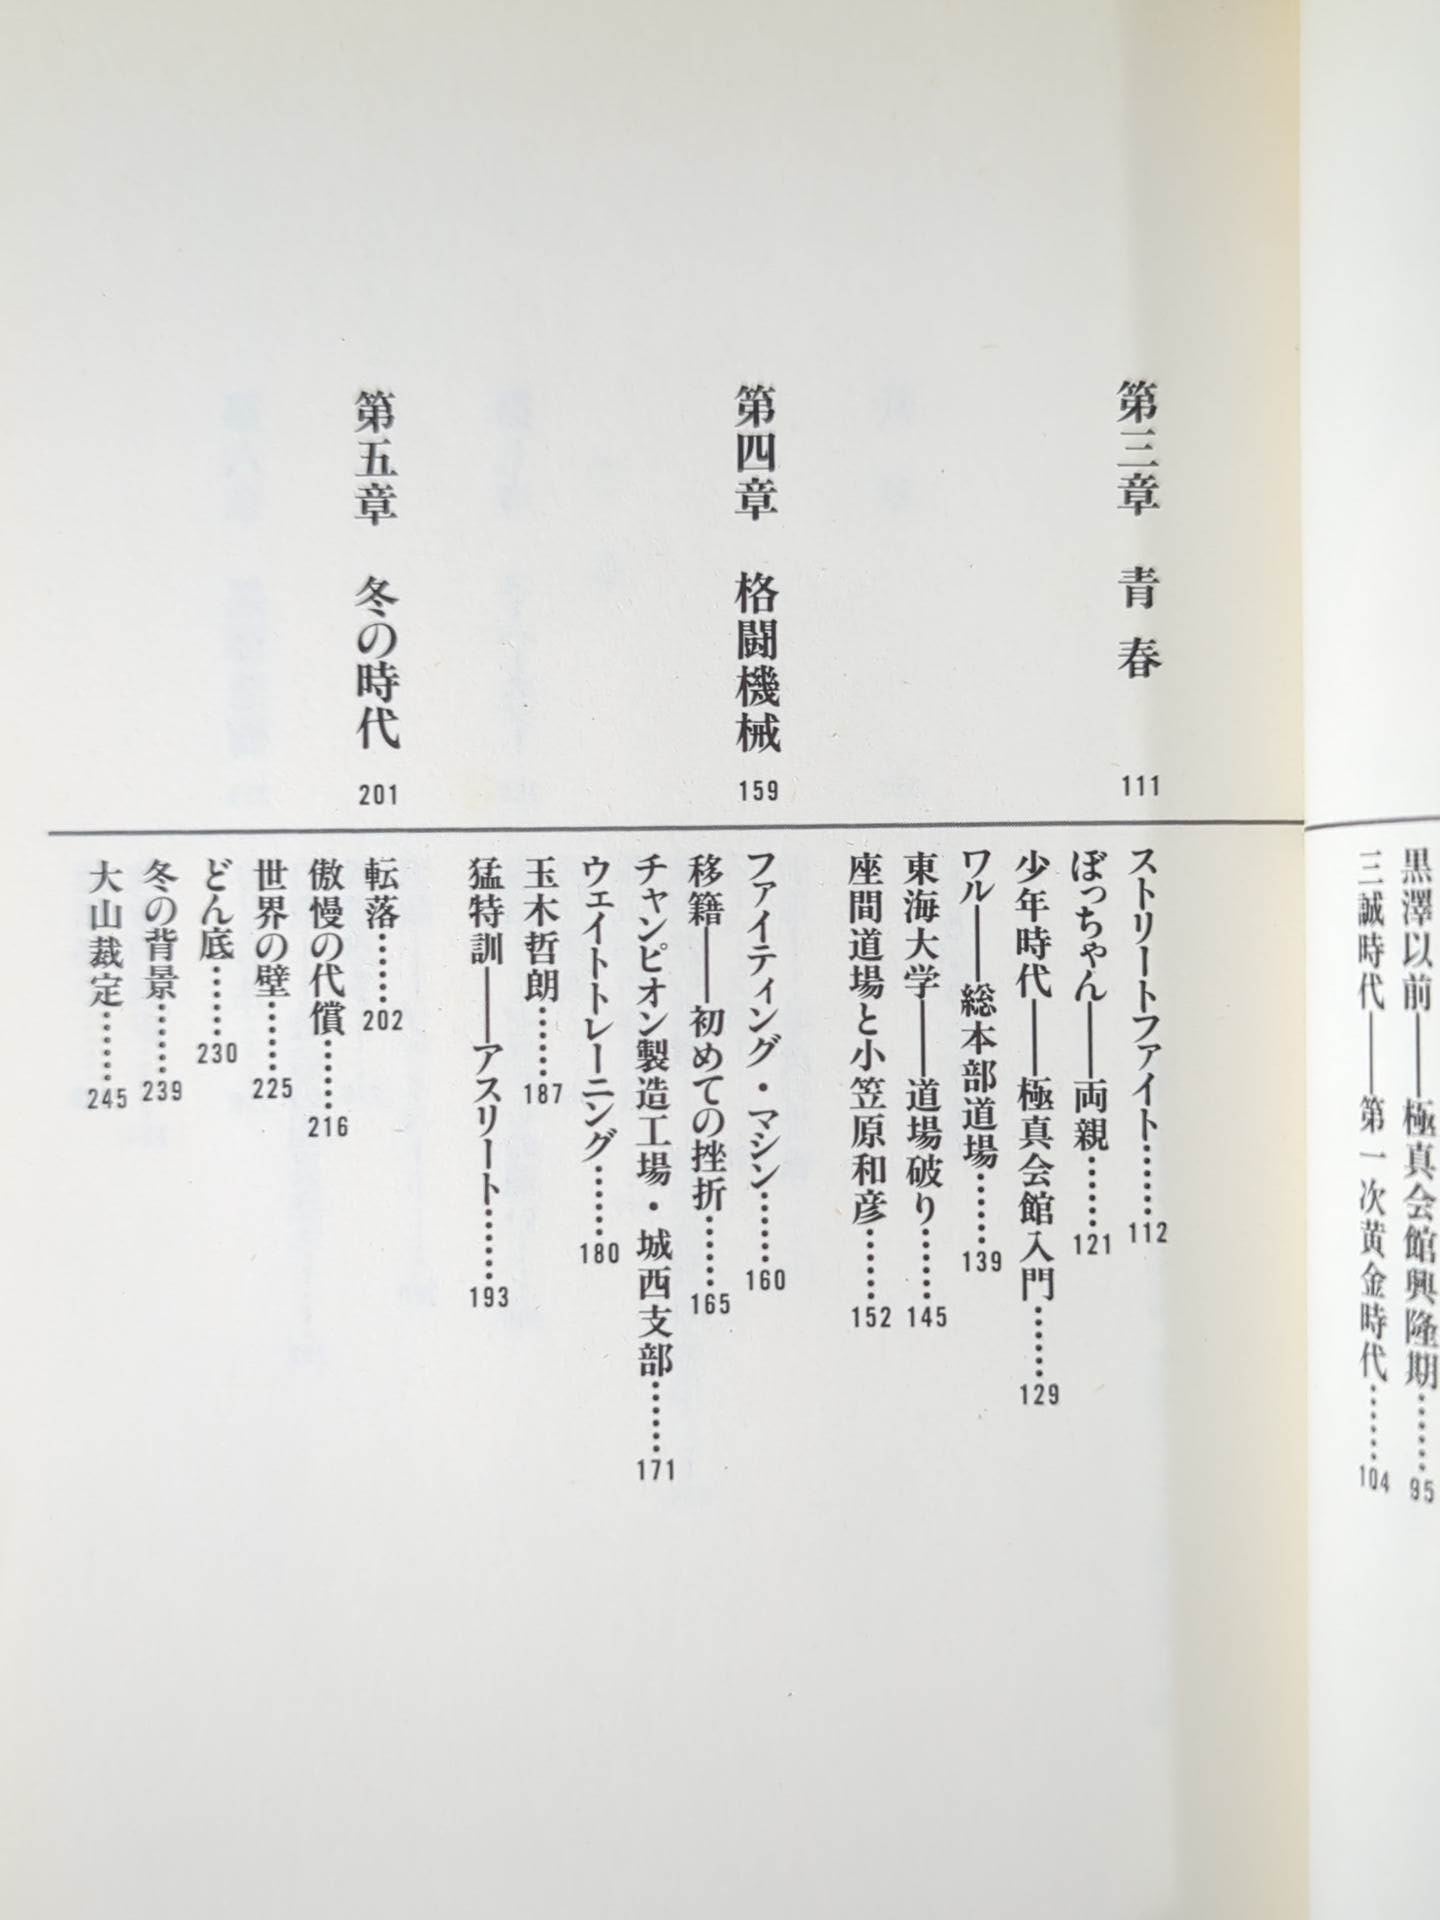 黒澤以前——極真会館興隆期……95
三誠時代——第一次黄金時代……104
第三章 青春 111
ストリートファイト……112
ぼっちゃん——両親……121
少年時代——極真会館入門……129
ワル——総本部道場……139
東海大学——道場破り……145
座間道場と小笠原和彦……152
第四章 格闘機械 159
ファイティング・マシン……160
移籍——初めての挫折……165
チャンピオン製造工場・城西支部……171
ウェイトトレーニング……180
玉木哲朗……187
猛特訓——アスリート……193
第五章 冬の時代 201
転落……202
傲慢の代償……216
世界の壁……225
どん底……230
冬の背景……239
大山裁定……245